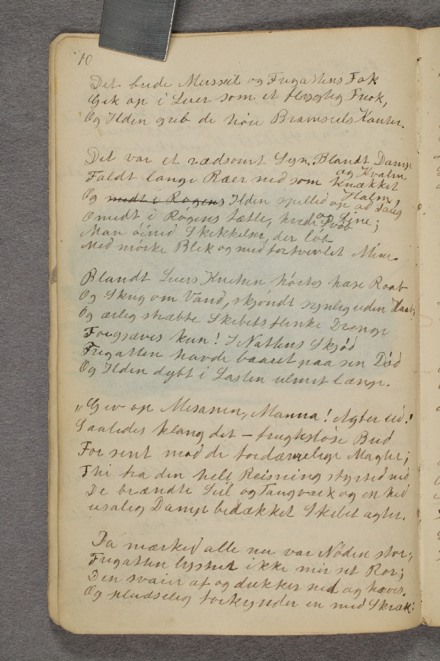 10
Det bude Mersseil og Fregattens Fok
Gik op i Luer som et flygtig Fnok,
Og Ilden greb de høie Bramseils Kanter.
Det var et rædsomt Syn. Blandt Damp og Kvalm
Faldt lange Ræer ned som knækket Halm,
Og midt i Røgens Ilden spilled op ad Toug og Line;
Omidt i Røgens tætte, hvide Svøb
Man øined Skikkelser, der løb
Med mörke Blik og med fortvivlet Mine.
Blandt Luers Knitren hörtes hase Raab
Og Skrig om Vand, skjöndt synlig uden Haab,
Og ærlig stræbte Skibets flinke Drenge
Forgjæves kun! I Nattens Skjød
Fregatten havde baaret paa sin Död
Og Ilden dybt i Lasten ulmet længe.
„Giv op Mesanen, Manna! Agter ud!
Saaledes klang det – frugtesløse Bud
For sent mod de fordærvelige Magter;
Thi fra den hele Reisning styrted ned
De brændte Seil og Taugværk og en hed
usalig Damp bedækket Skibet agter.
Da mærked alle nu var Nöden stor,
Fregatten lystret ikke mer sit Ror;
Den svaier af og dukker ned og hæves,
Og pludselig forkynder en med Skræk: